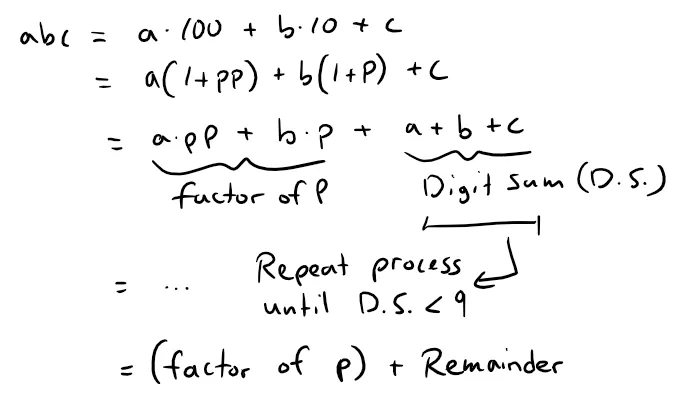 abc = a·100 + b·10 + c
= a(1+pp) + b(1+p) + c
= a·pp + b·p + a+b+c
factor of p
Digit sum (D.S.)
= ...
Repeat process
until D.S. < 9
= (factor of p) + Remainder